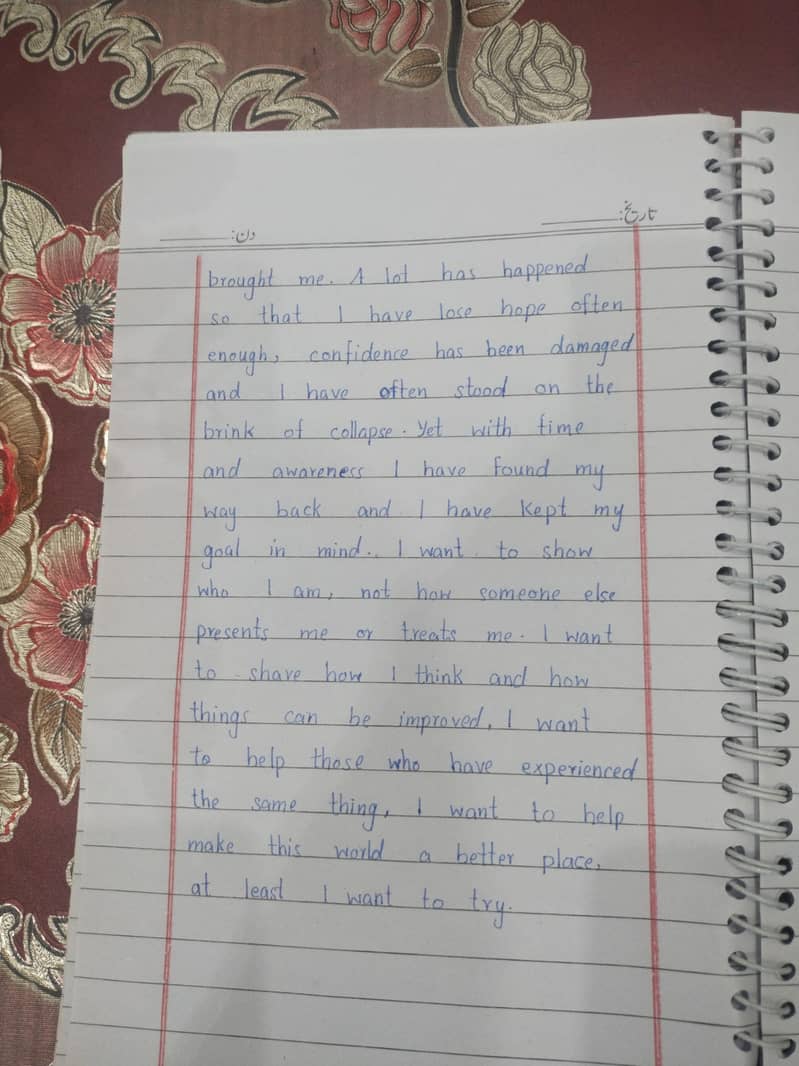 تاریخ: ________
دن: ________
brought me. A lot has happened
so that I have lose hope often
enough, confidence has been damaged
and I have often stood on the
brink of collapse. Yet with time
and awareness I have found my
way back and I have kept my
goal in mind.. I want to show
who I am, not how someone else
presents me or treats me. I want
to shave how I think and how
things can be improved, I want
to help those who have experienced
the same thing, I want to help
make this world a better place,
at least I want to try.